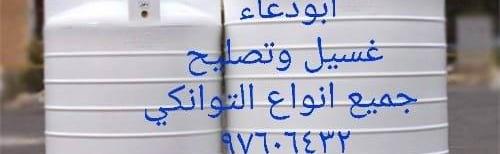 ابودعاء
غسيل وتصليح
جميع انواع التوانكي
٩٧٦٠٦٤٣٢